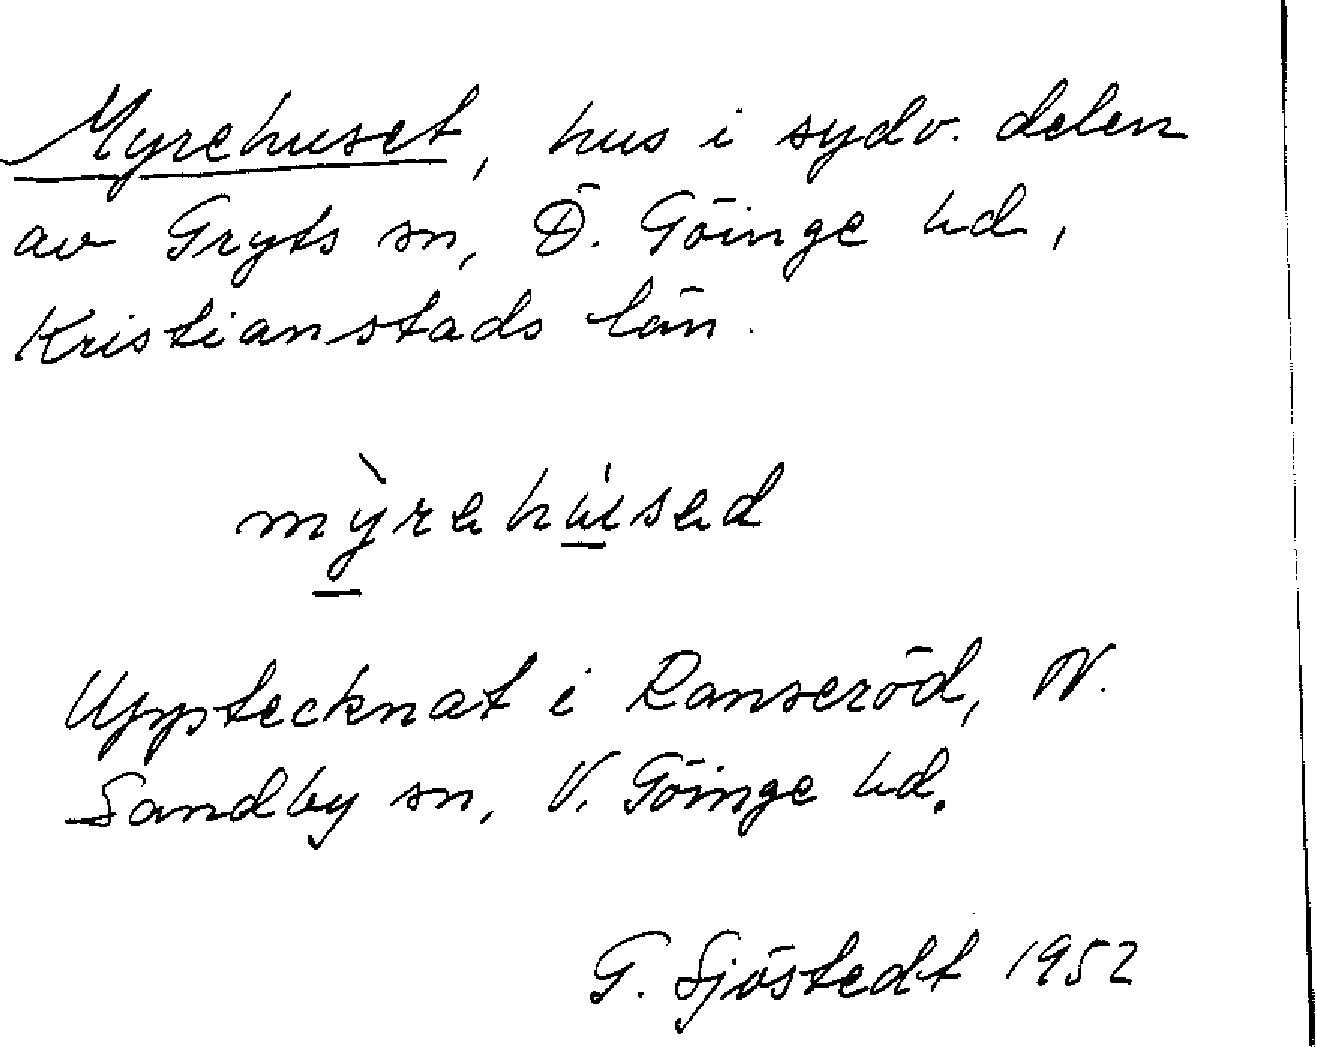 Myrehuset, hus i sydv. delen
av Gryts sn, Ö. Göinge hd,
Kristianstads län.
mỳrehúsed
Upptecknat i Ranseröd, N.
Sandby sn, V. Göinge hd.
G. Sjöstedt 1952